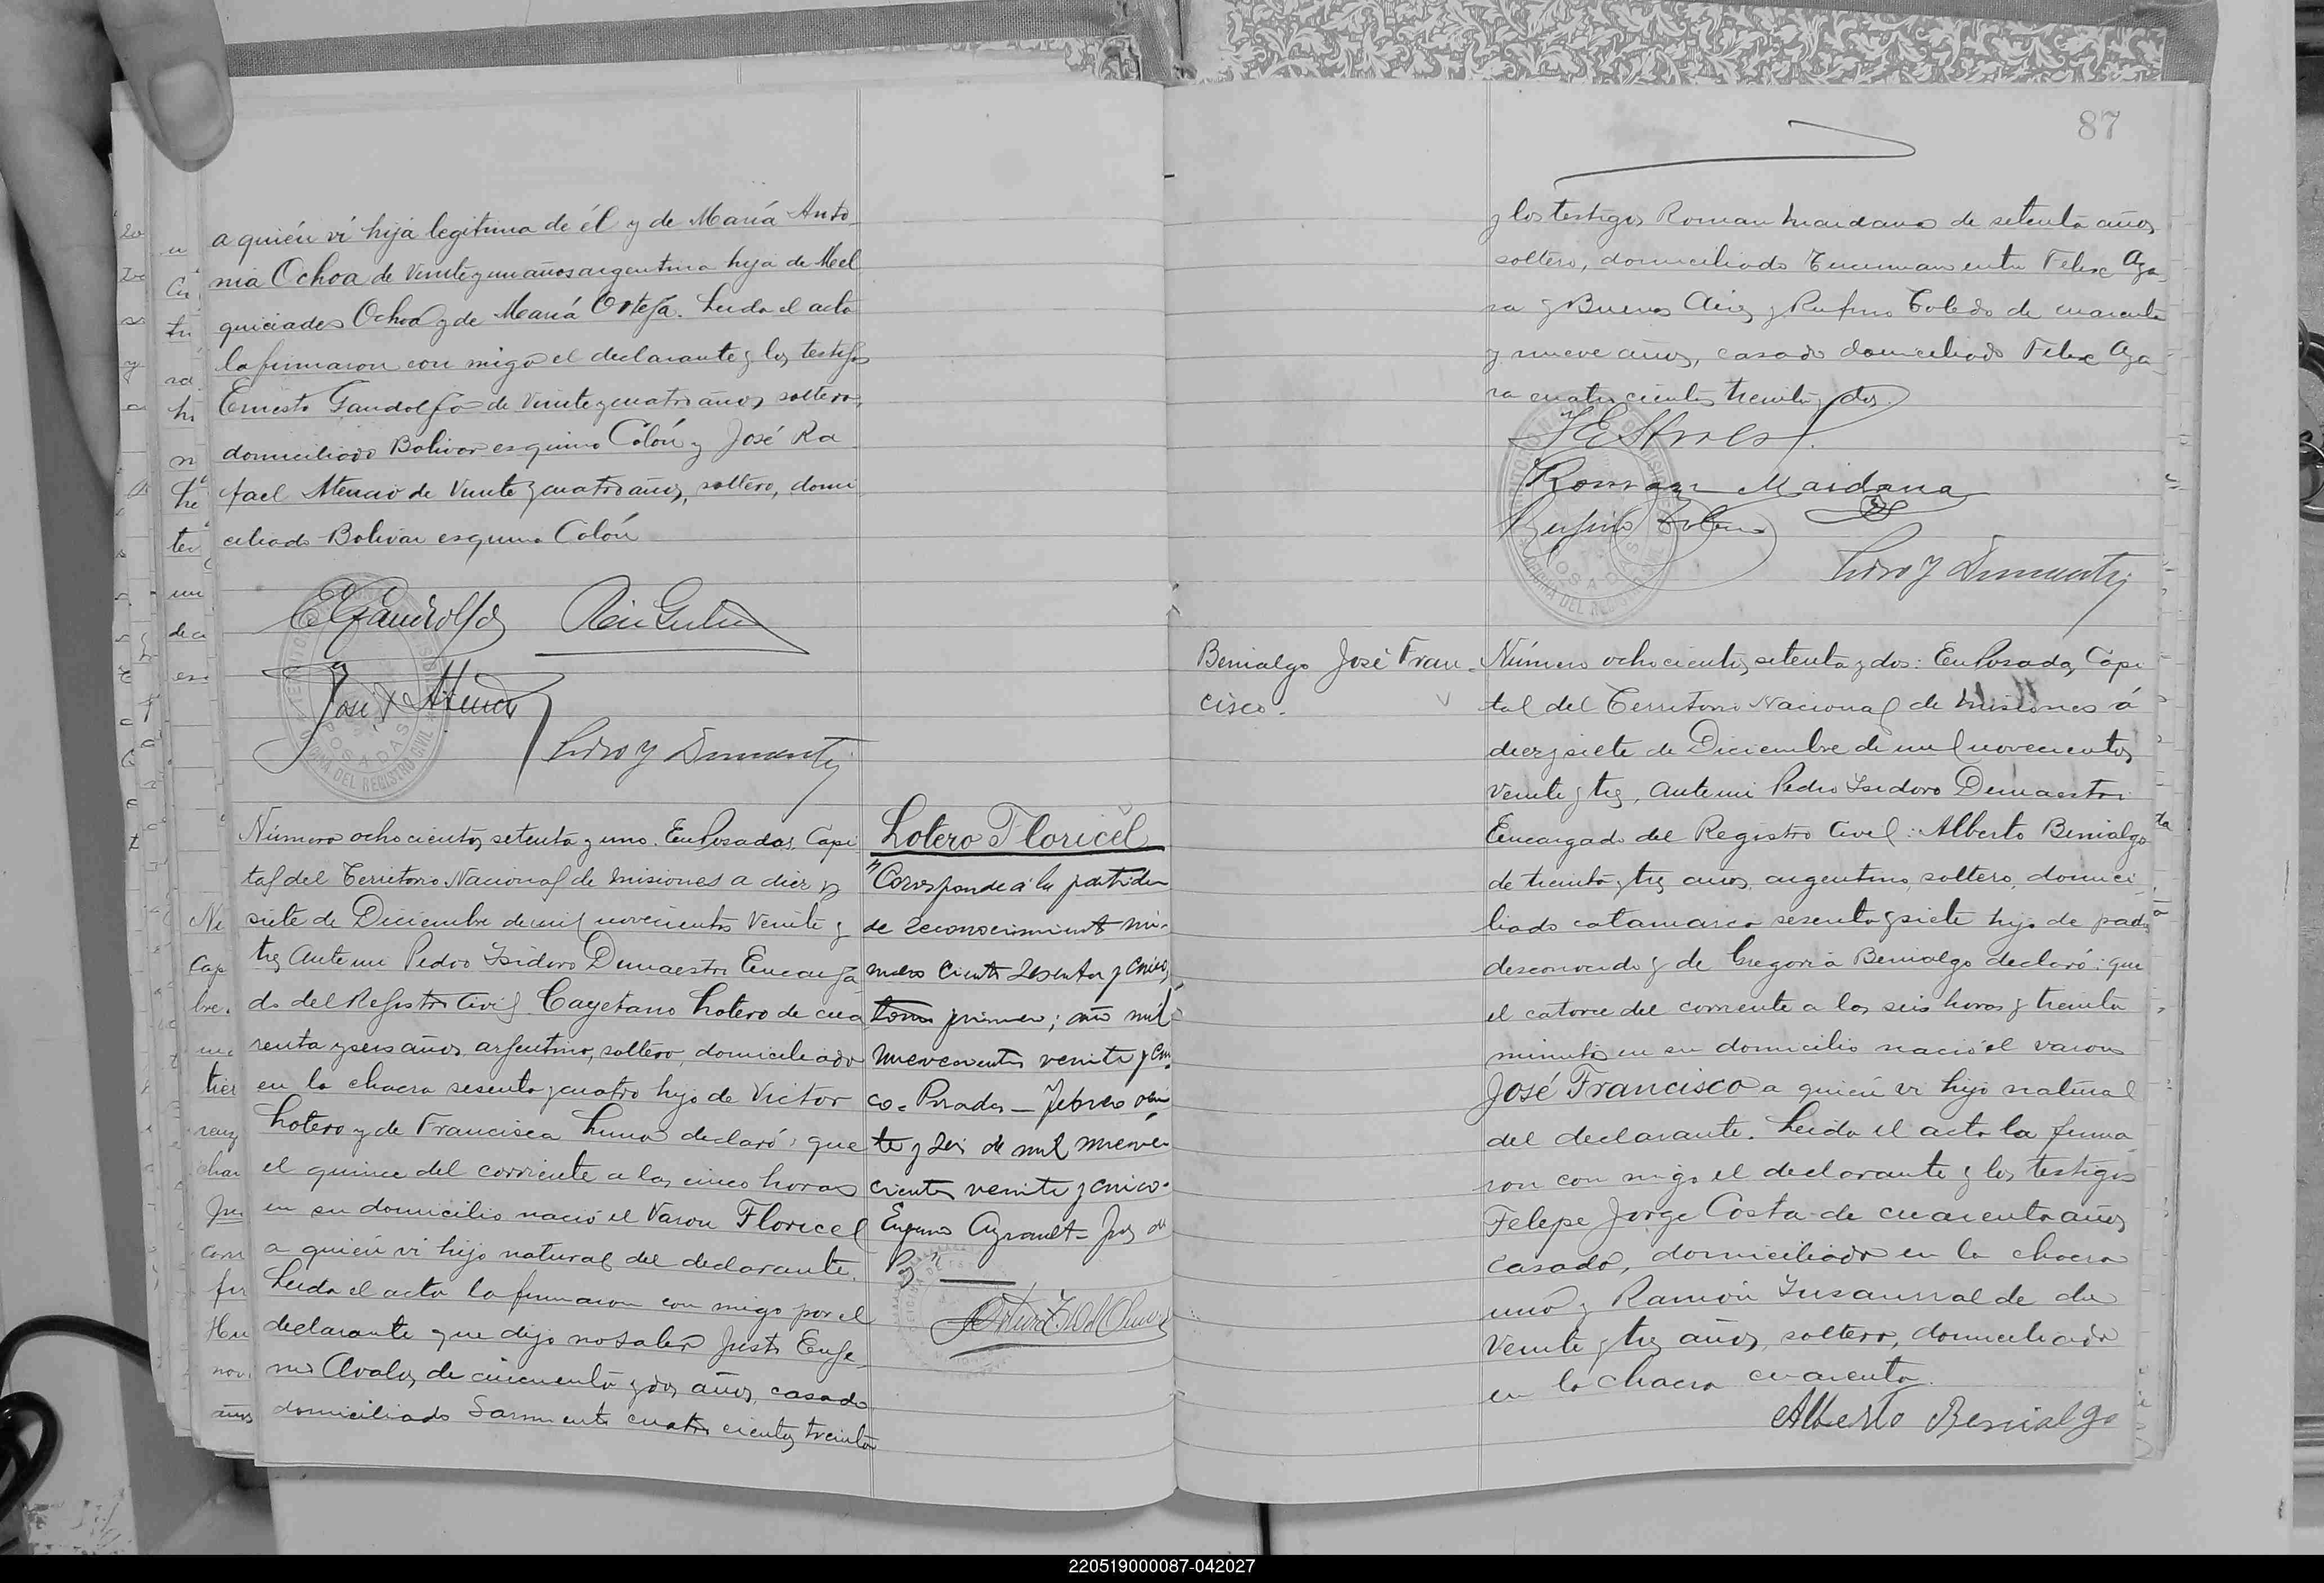 a quién vi hija legitima de él y de María Anto
nia Ochoa de Veinte y un años argentina hija de Mel
quiciades Ochoa y de María Ortega. Leida el acta
la firmaron con migo el declarante y los testigos
Ernesto Gandolfo de Veinte y cuatro años, soltero,
domiciliado Bolivar esquina Colón y José Ra
fael Atencio de Veinte y cuatro años, soltero, domi
ciliado Bolivar esquina Colón
E Gandolfo
José R Atencio
Isidro Demaestri
Número ochocientos setenta y uno. En Posadas, Capi
tal del Territorio Nacional de Misiones a diez y
siete de Diciembre de mil novecientos Veinte y
tres Ante mi Pedro Isidoro Demaestri Encarga
do del Registro Civil Cayetano Lotero de cua
renta y seis años, argentino, soltero, domiciliado
en la chacra sesenta y cuatro hijo de Victor
Lotero y de Francisca Luna declaró: que
el quince del corriente a las cinco horas
en su domicilio nació el Varon Floricel
a quién vi hijo natural del declarante.
Leida el acta la firmaron con migo por el
declarante que dijo no saber Justo Euge
nio Avalos, de cincuenta y dos años, casado
domiciliado Sarmiento cuatro cientos treinta
Lotero Floricel
"Corresponde á la partida
de reconocimiento nú-
mero ciento sesenta y cinco,
tomo primero; año mil
nuevecientos veinte y cin
co. Posadas - Febrero vein
te y seis de mil nueve
cientos veinte y cinco.
Eugenio Ayrault - Juez de
Paz"
87
y los testigos Roman Maidana de setenta años
soltero, domiciliado Tucuman entre Felix Aza
ra y Buenos Aires y Rufino Toledo de cuarenta
y nueve años, casado domiciliado Felix Aza
ra cuatrocientos treinta y dos
Roman Maidana
Rufino Toledo
Isidro Demaestri
Benialgo José Fran-
cisco.
Número ochocientos setenta y dos: En Posadas, Capi
tal del Territorio Nacional de Misiones á
diez y siete de Diciembre de mil novecientos
Veinte y tres, Ante mi Pedro Isidoro Demaestri
Encargado del Registro Civil: Alberto Benialgo
de treinta y tres años, argentino, soltero, domici
liado catamarca sesenta y siete hijo de padre
desconocido y de Gregoria Benialgo declaró: que
el catorce del corriente a las seis horas y treinta
minutos en su domicilio nació el varon
José Francisco a quién vi hijo natural
del declarante. Leida el acta la firma
ron con migo el declarante y los testigos
Felipe Jorge Costa de cuarenta años
casado, domiciliado en la chacra
uno y Ramón Insaurralde de
Veinte y tres años, soltero, domiciliado
en la chacra cuarenta.
Alberto Benialgo
220519000087-042027